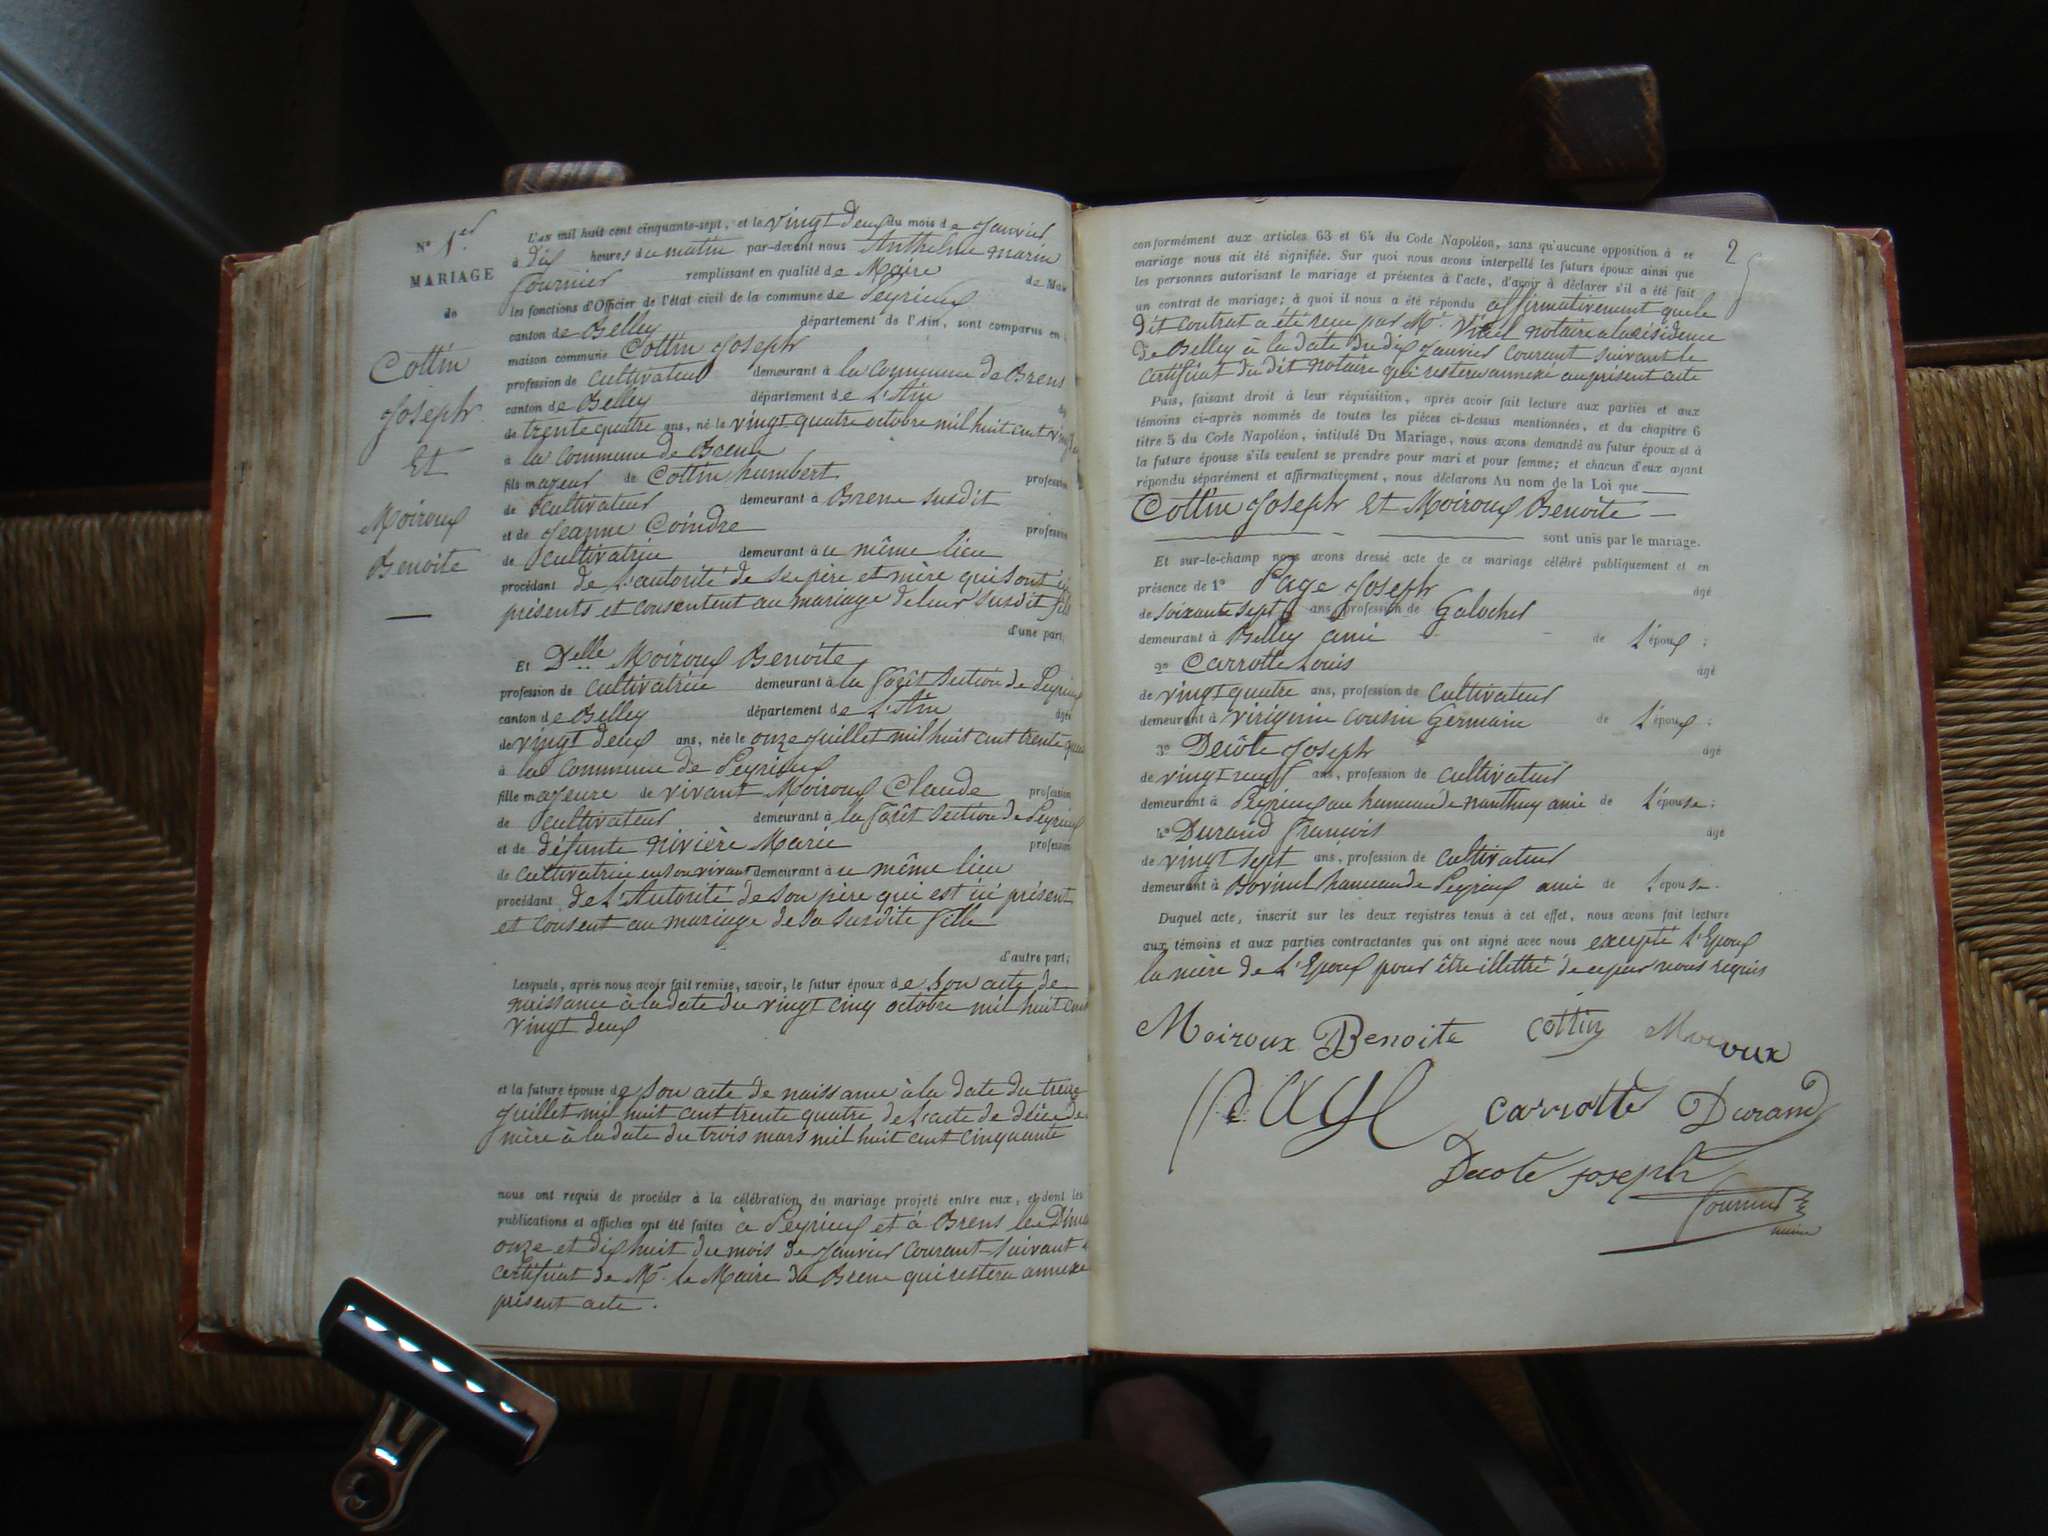 N° 1er
MARIAGE
de
Cottin
Joseph
Et
Moiroux
Benoite
L'AN mil huit cent cinquante-sept, et le vingt deux du mois de Janvier
à dix heures du matin par-devant nous Anthelme marin
Fournier remplissant en qualité de Maire
les fonctions d'Officier de l'état civil de la commune de Peyrieux
canton de Belley département de l'Ain, sont comparus en
maison commune Cottin Joseph
profession de cultivateur demeurant à la commune de Brens
canton de Belley département de L'Ain
de trente quatre ans, né le vingt quatre octobre mil huit cent
à la commune de Brens
fils majeur de Cottin humbert profession
de cultivateur demeurant à Brens susdit
et de Jeanne Coindre profession
de cultivatrice demeurant à ce même lieu
procédant de L'autorité de ses père et mère qui sont ici
présents et consentent au mariage de leur susdit fils
d'une part;
Et Delle Moiroux Benoite
profession de cultivatrice demeurant à la forêt section de Peyrieux
canton de Belley département de L'Ain âgée
de vingt deux ans, née le onze Juillet mil huit cent trente
à la commune de Peyrieux
fille majeure de vivant Moiroux Claude profession
de cultivateur demeurant à la forêt section de Peyrieux
et de défunte Rivière Marie profession
de cultivatrice en son vivant demeurant à ce même lieu
procédant de L'Autorité de son père qui est ici présent
et consent au mariage de sa susdite fille
d'autre part;
Lesquels, après nous avoir fait remise, savoir, le futur époux de son acte de
naissance à la date du vingt cinq octobre mil huit cent
vingt deux
et la future épouse de son acte de naissance à la date du treize
Juillet mil huit cent trente quatre de l'acte de décès de
mère à la date du trois mars mil huit cent cinquante
nous ont requis de procéder à la célébration du mariage projeté entre eux, et dont les
publications et affiches ont été faites à Peyrieux et à Brens les
onze et dix huit du mois de Janvier courant suivant
certificat de Mr le Maire de Brens qui restera annexé
présent acte.
2
conformément aux articles 63 et 64 du Code Napoléon, sans qu'aucune opposition à ce
mariage nous ait été signifiée. Sur quoi nous avons interpellé les futurs époux ainsi que
les personnes autorisant le mariage et présentes à l'acte, d'avoir à déclarer s'il a été fait
un contrat de mariage; à quoi il nous a été répondu affirmativement que le
dit contrat a été reçu par Me notaire à la résidence
de Belley à la date du dix Janvier courant suivant le
certificat du dit notaire qui restera annexé au présent acte
Puis, faisant droit à leur réquisition, après avoir fait lecture aux parties et aux
témoins ci-après nommés de toutes les pièces ci-dessus mentionnées, et du chapitre 6
titre 5 du Code Napoléon, intitulé Du Mariage, nous avons demandé au futur époux et à
la future épouse s'ils veulent se prendre pour mari et pour femme; et chacun d'eux ayant
répondu séparément et affirmativement, nous déclarons Au nom de la Loi que
Cottin Joseph Et Moiroux Benoite
sont unis par le mariage.
Et sur-le-champ nous avons dressé acte de ce mariage célébré publiquement et en
présence de 1° Page Joseph âgé
de soixante sept ans, profession de Galocher
demeurant à Belley ami de L'époux;
2° Carrotte Louis âgé
de vingt quatre ans, profession de cultivateur
demeurant à virignin cousin Germain de L'époux;
3° Decôte Joseph âgé
de vingt neuf ans, profession de cultivateur
demeurant à Peyrieux au hameau de nanthuy ami de L'épouse;
4° Durand François âgé
de vingt sept ans, profession de cultivateur
demeurant à hameau de Peyrieux ami de L'épouse.
Duquel acte, inscrit sur les deux registres tenus à cet effet, nous avons fait lecture
aux témoins et aux parties contractantes qui ont signé avec nous excepté L'Epoux
la mère de L'Epoux pour être illettré de ce par nous requis
Moiroux Benoite cottin Moiroux
Page Carrotte Durand
Decote joseph
Fournier
maire